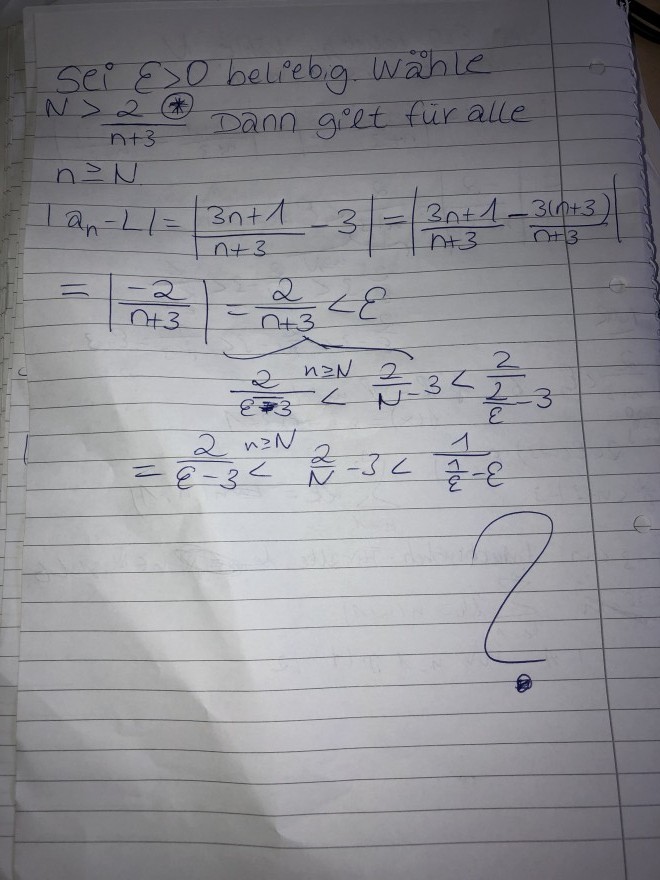 Sei ε>0 beliebig. Wähle
N > 2/(n+3) (*) Dann gilt für alle
n ≥ N
|aₙ - L| = |(3n+1)/(n+3) - 3| = |(3n+1)/(n+3) - 3(n+3)/(n+3)|
= |-2/(n+3)| = 2/(n+3) < ε
2/(ε-3) <^(n≥N) 2/N - 3 < 2/(2/ε) - 3
= 2/(ε-3) <^(n≥N) 2/N - 3 < 1/(1/ε) - ε
?